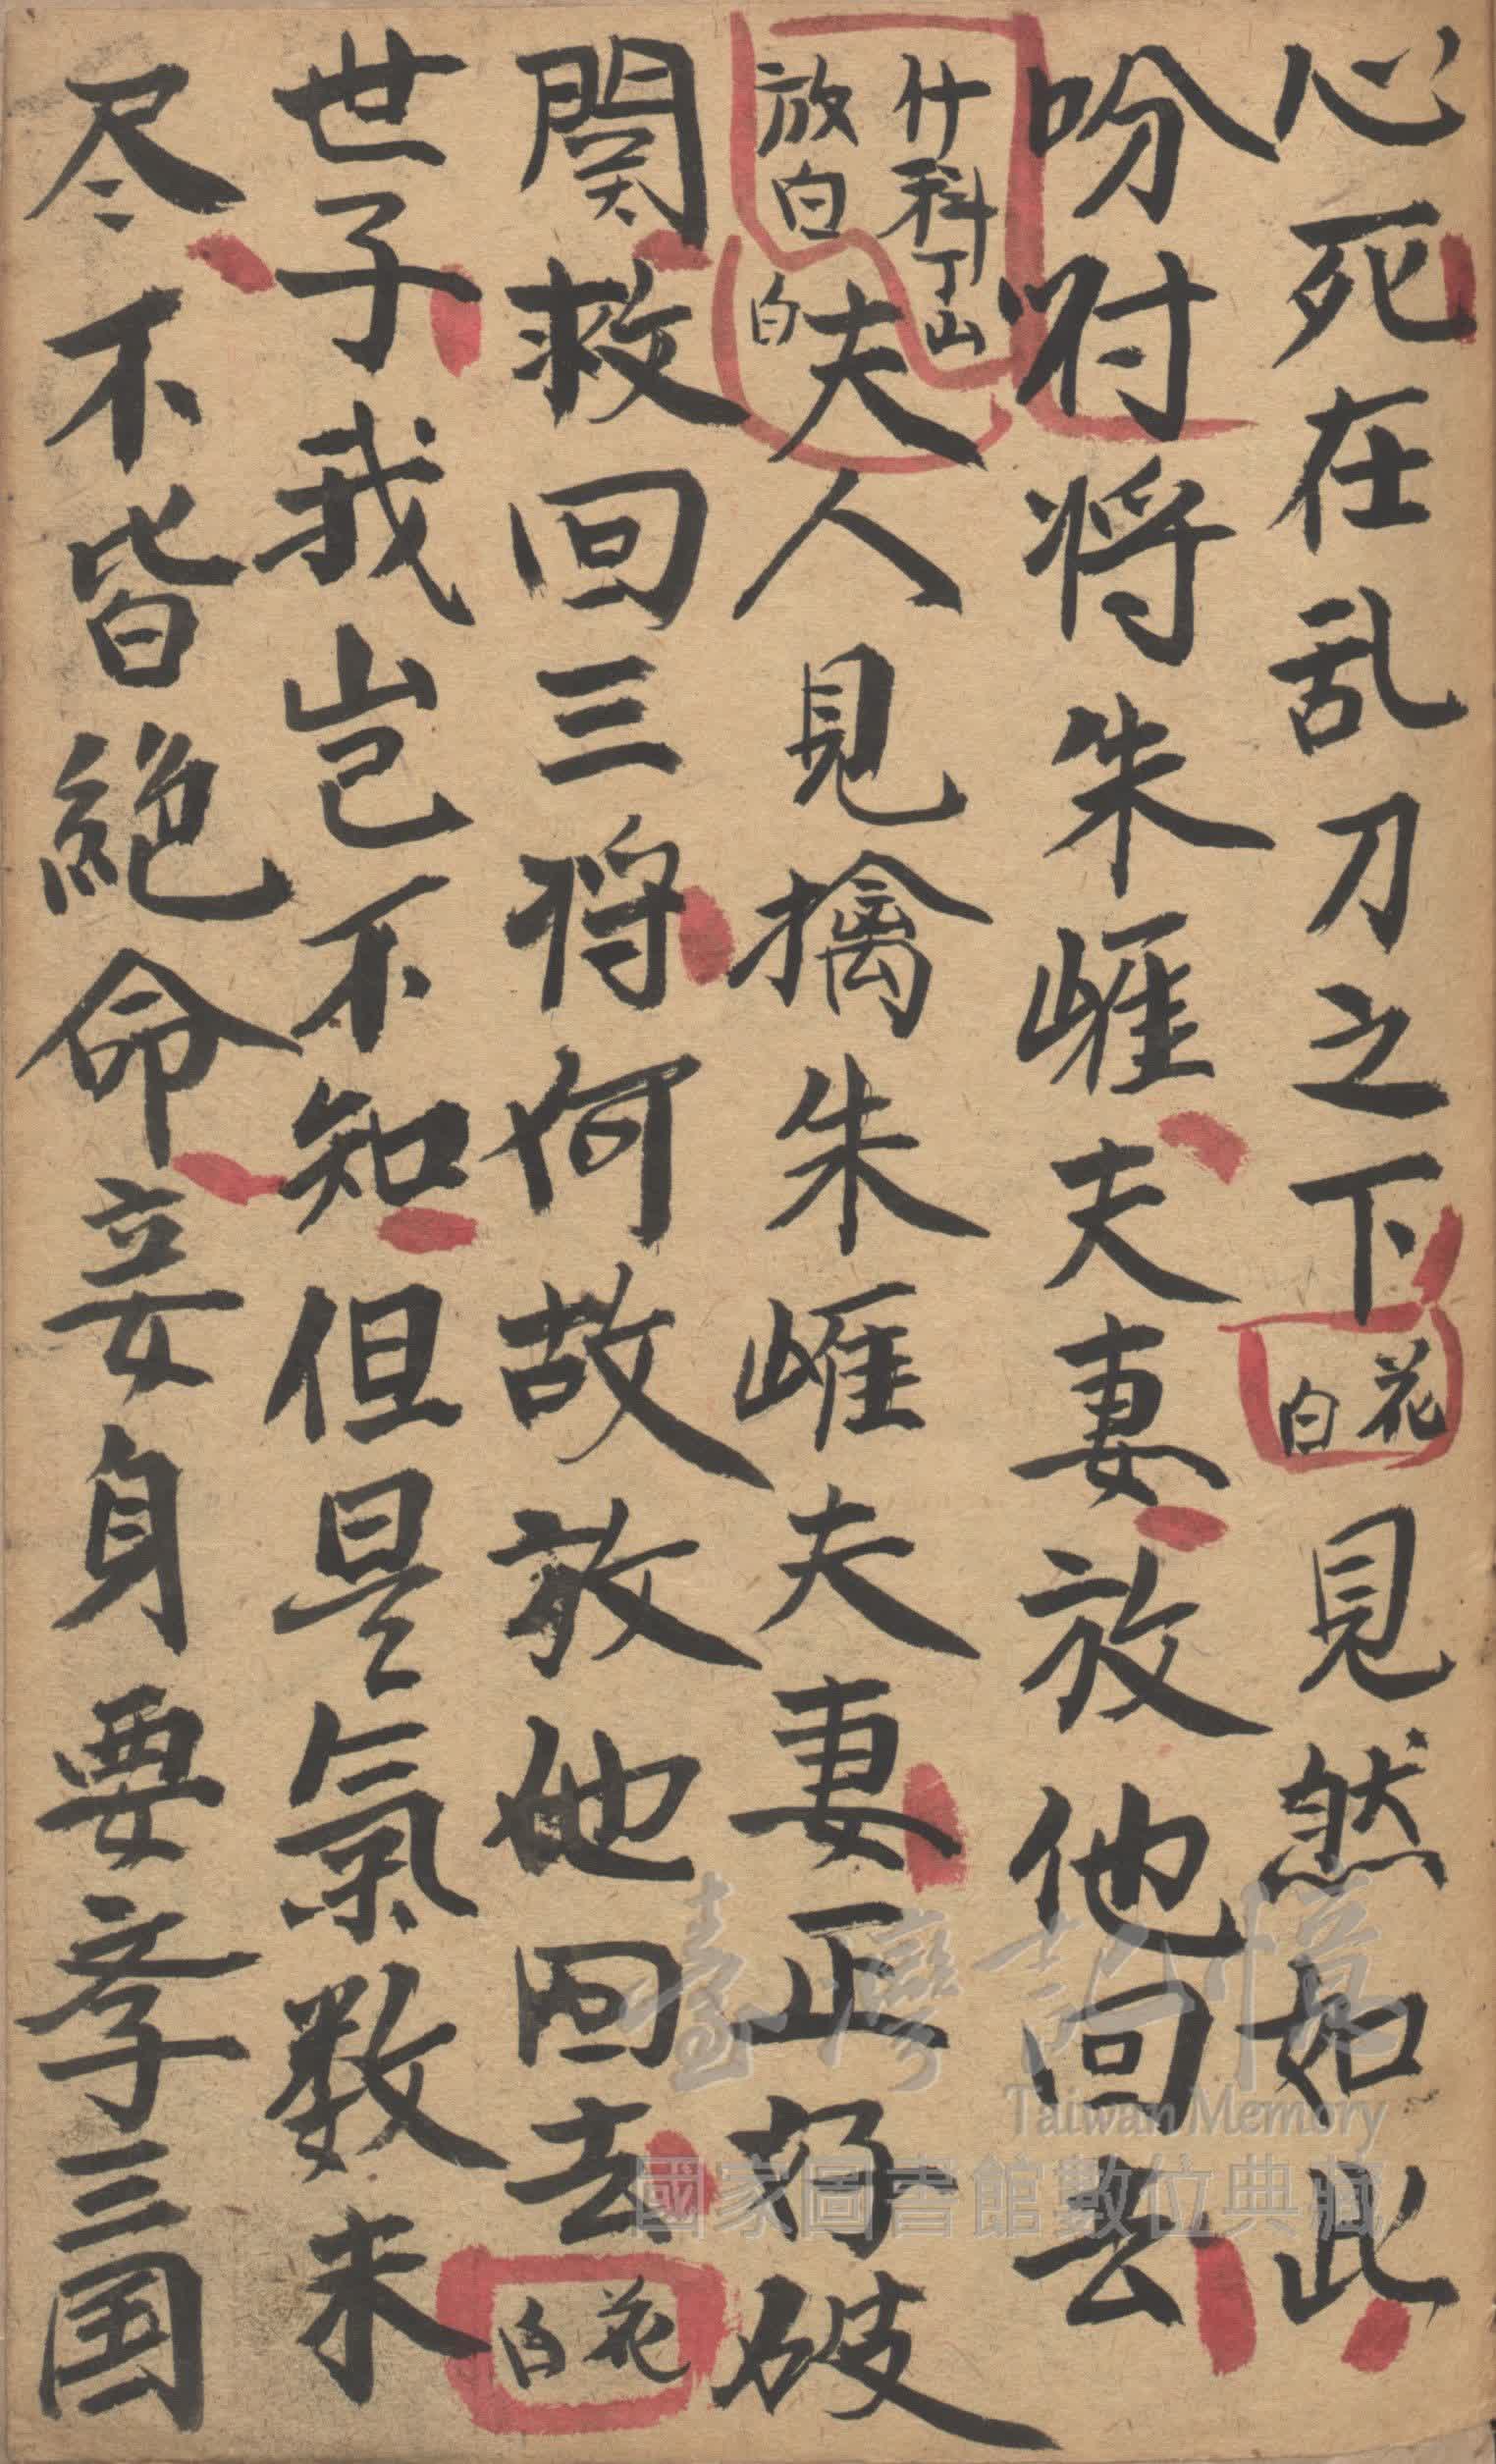 心死在乱刀之下花白見然如此
吩咐将朱崕夫妻放他回去
什科丁山
放白
白夫人見擒朱崕夫妻正好破
関救回三将何故放他回去花白
世子我岂不知但是氣数未
尽不皆絕命妾身要孝三国
臺灣記憶
Taiwan Memory
國家圖書館數位典藏